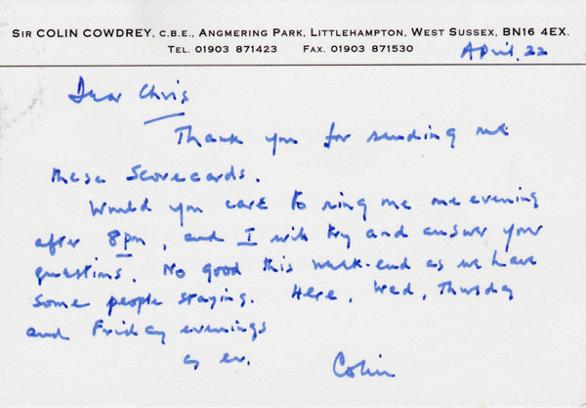 SIR COLIN COWDREY, C.B.E., ANGMERING PARK, LITTLEHAMPTON, WEST SUSSEX, BN16 4EX.
TEL. 01903 871423 FAX. 01903 871530
April. 22
Dear Chris
Thank you for sending me
these scorecards.
Would you care to ring me one evening
after 8pm, and I will try and answer your
questions. No good this week-end as we have
some people staying. Here, Wed, Thursday
and Friday evenings
as ev.
Colin